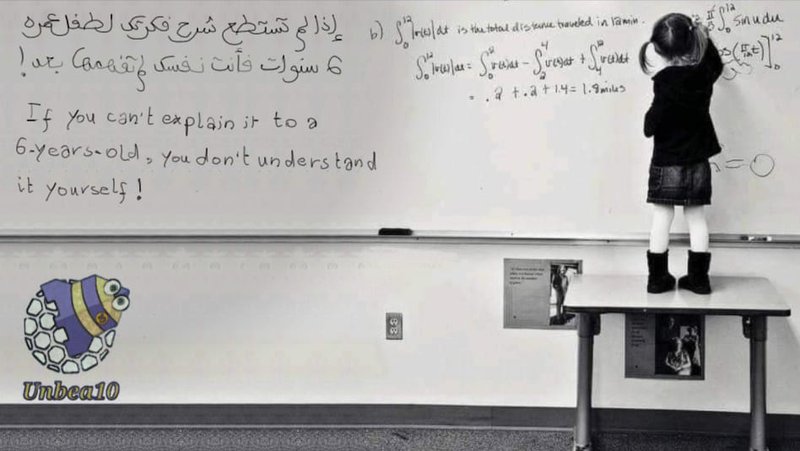 إذا لم تستطع شرح فكرتك لطفل عمره
6 سنوات فأنت نفسك لم تفهمها بعد!
If you can't explain it to a
6-years-old, you don't understand
it yourself!
b) ∫₀¹² |v(t)| dt is the total distance traveled in 12 min.
∫₀¹² |v(t)| dt = ∫₀² v(t) dt - ∫₂⁴ v(t) dt + ∫₄¹² v(t) dt
= .2 + .2 + 1.4 = 1.8 miles
∫₀¹² sin u du
= 0
Unbea10